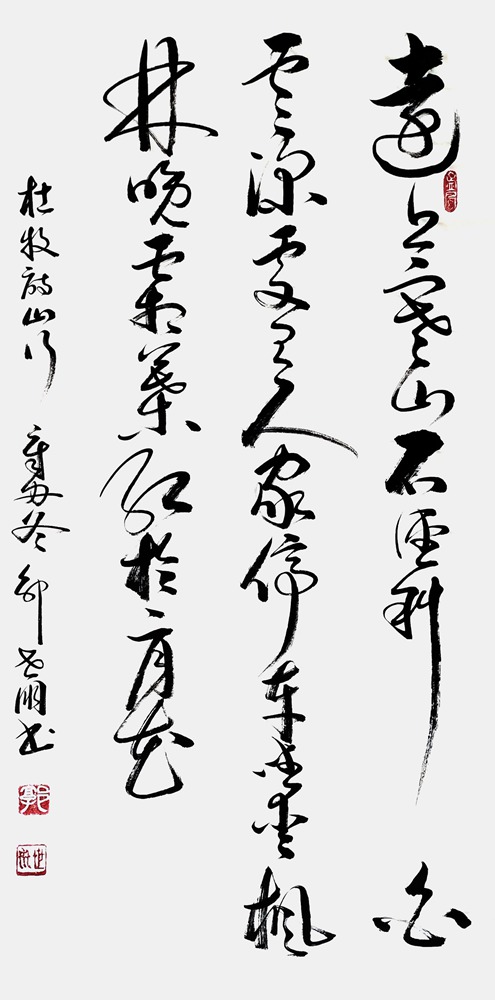 遠上寒山石徑斜白
雲深處有人家停車坐愛楓
林晚霜葉紅於二月花
杜牧詩山行 辛丑冬 郭世明書